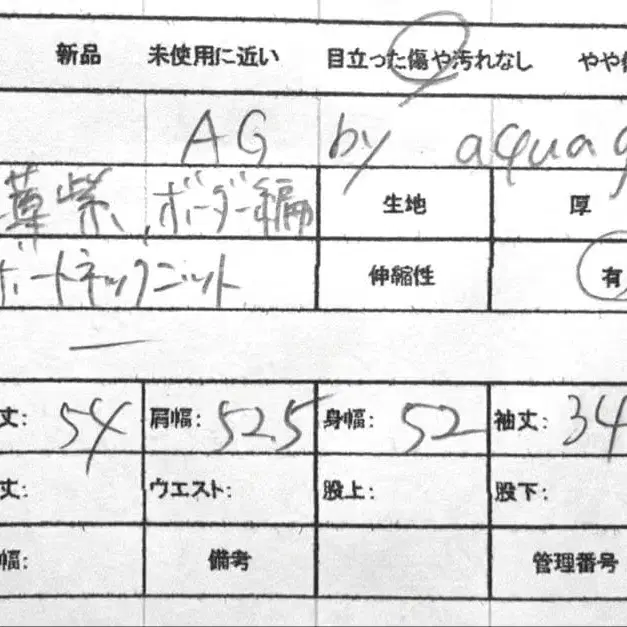 新品 未使用に近い 目立った傷や汚れなし やや
AG by aquag
薄紫、ボーダー編 生地 厚
ボートネックニット 伸縮性 有
丈: 54 肩幅: 52.5 身幅: 52 袖丈: 34
丈: ウエスト: 股上: 股下:
幅: 備考 管理番号